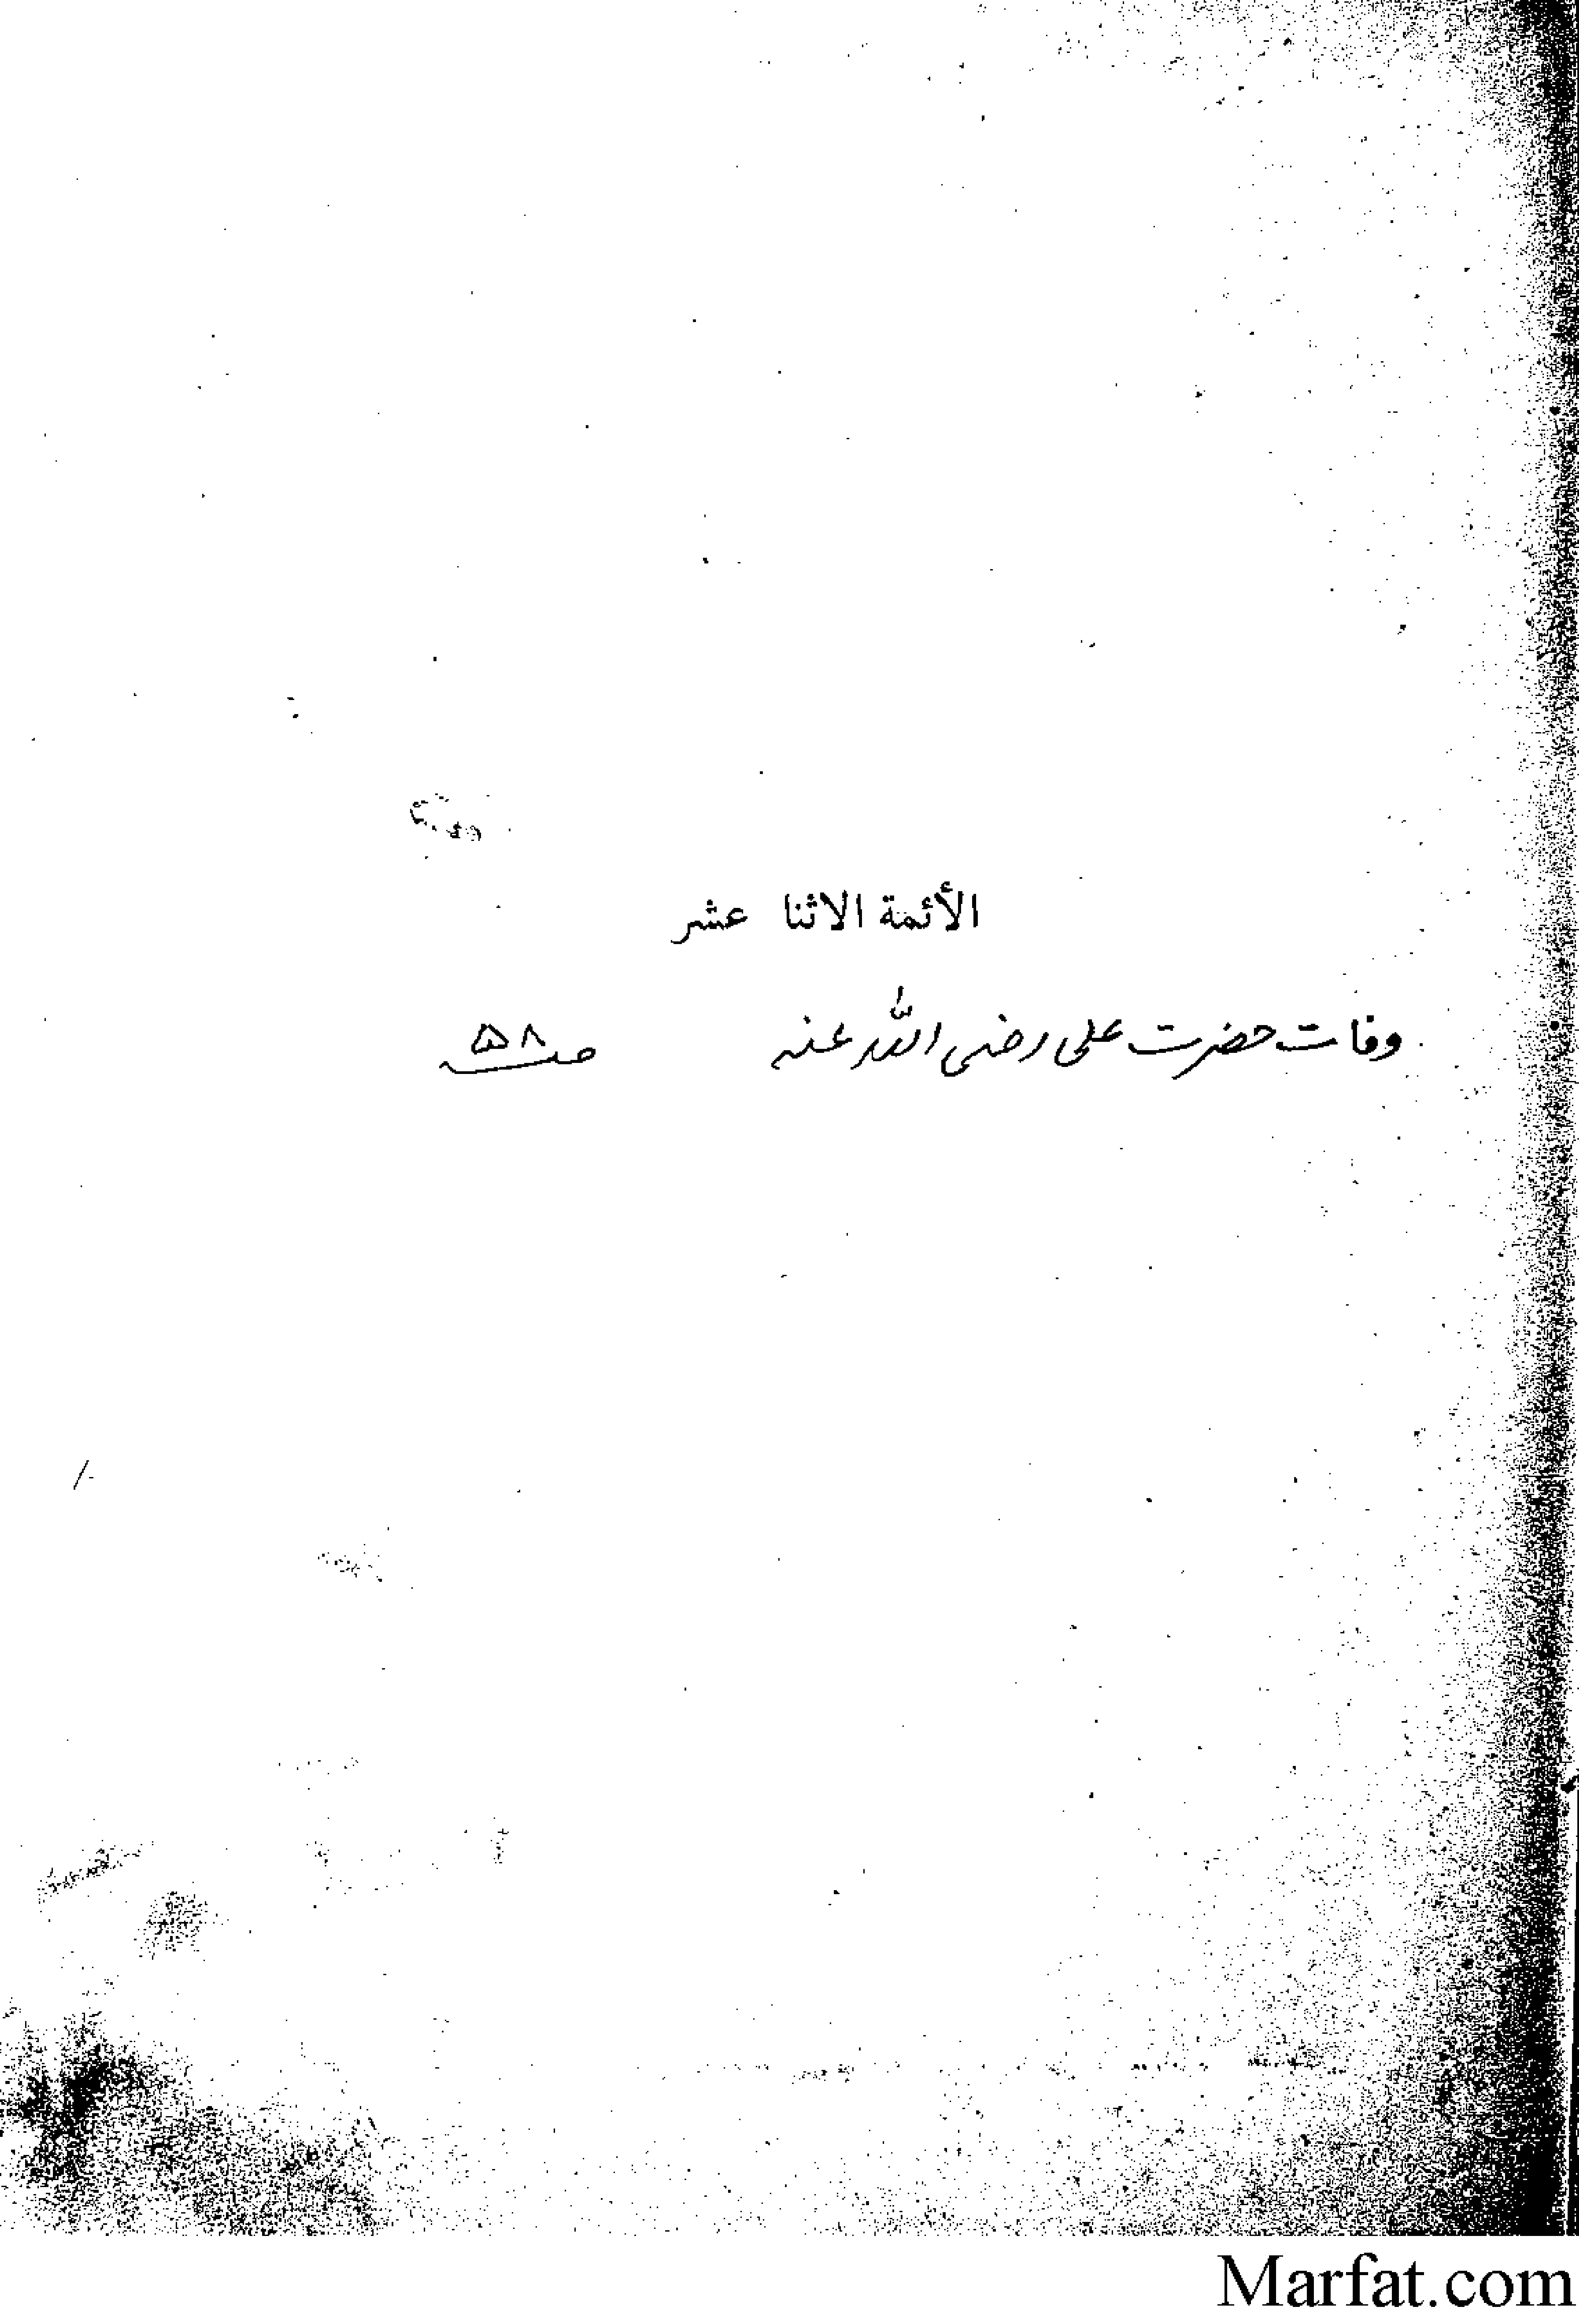 الأئمة الاثنا عشر
وفات حضرت علی رضی اللہ عنہ صـ ۵۸
Marfat.com